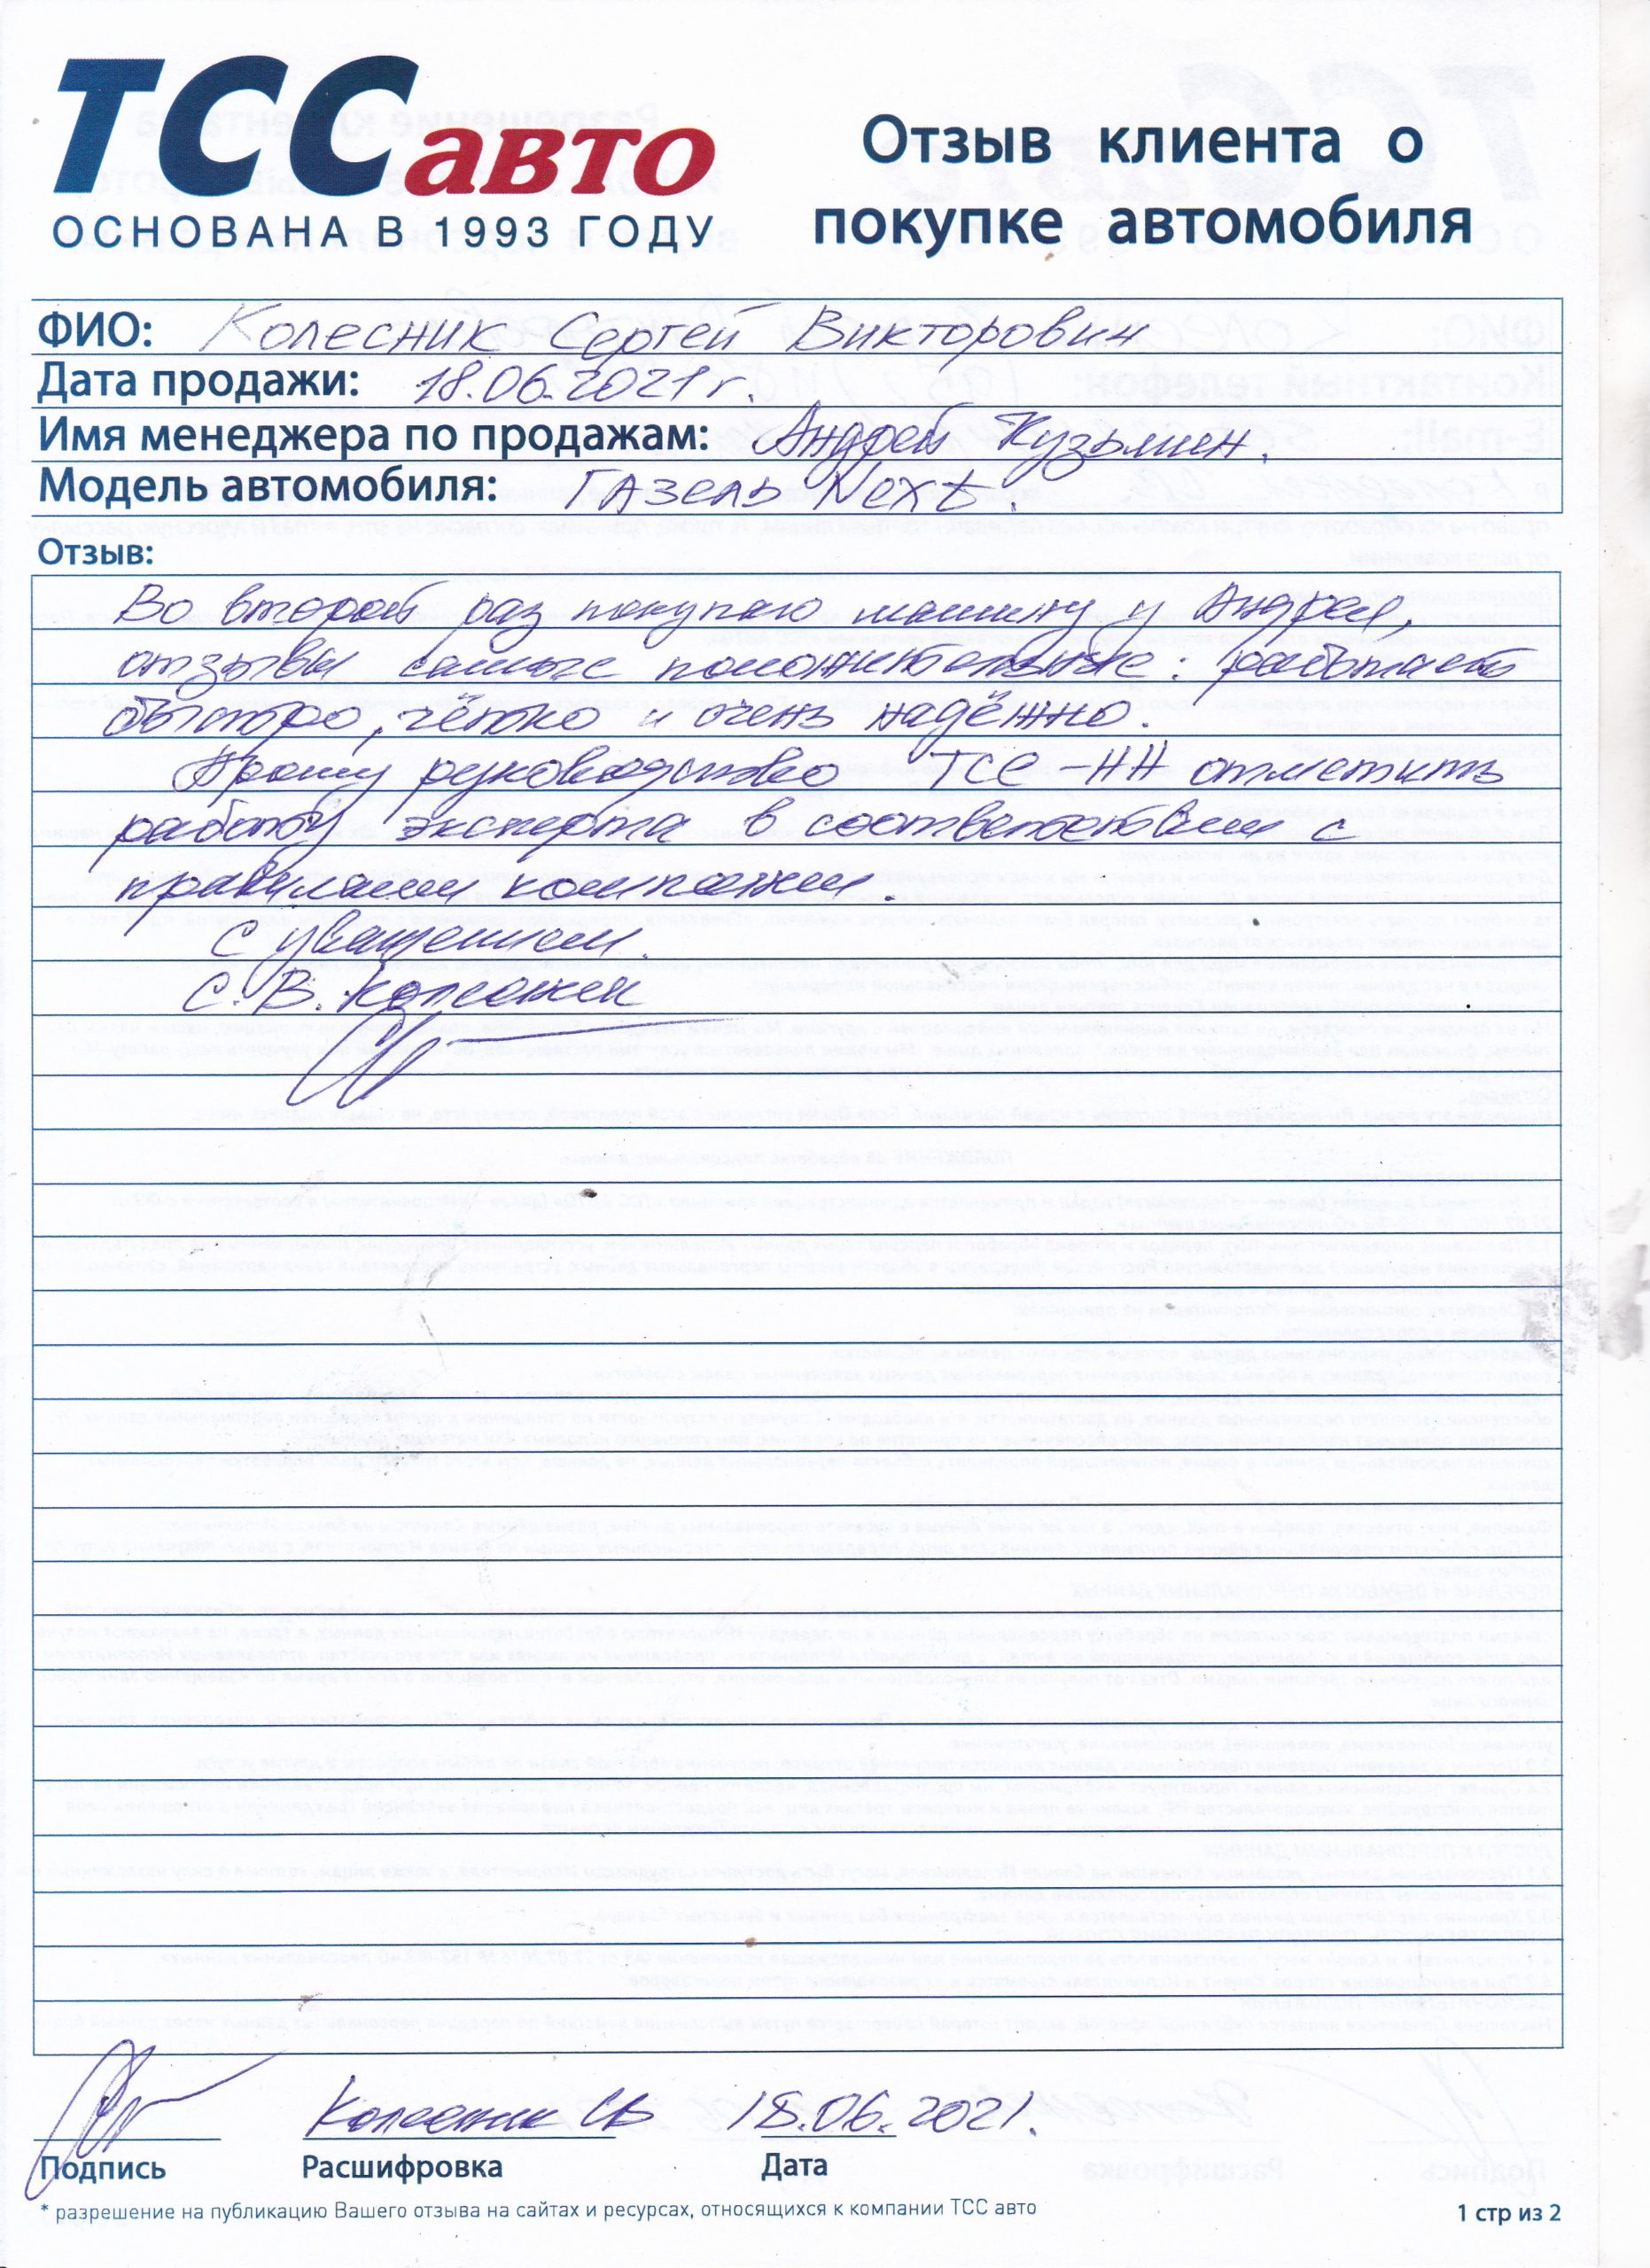 ТСС авто
ОСНОВАНА В 1993 ГОДУ
Отзыв клиента о
покупке автомобиля
ФИО: Колесник Сергей Викторович
Дата продажи: 18.06.2021 г.
Имя менеджера по продажам: Андрей Кузьмин.
Модель автомобиля: ГАЗель Next.
Отзыв:
Во второй раз покупаю машину у Андрея,
отзывы самые положительные: работает
быстро, чётко и очень надёжно.
Прошу руководство ТСС-НН отметить
работу эксперта в соответствии с
правилами компании.
С уважением.
С.В. Колесник
Колесник СВ 18.06.2021.
Подпись Расшифровка Дата
* разрешение на публикацию Вашего отзыва на сайтах и ресурсах, относящихся к компании ТСС авто
1 стр из 2